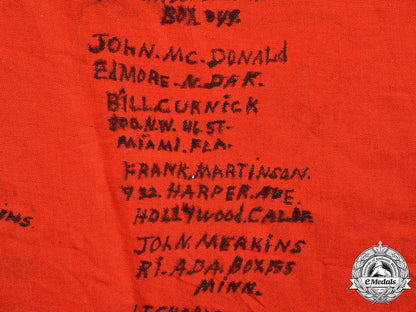 BOX
JOHN. MC. DONALD
EDMORE. N. DAK.
BILL. CURNICK
800. N.W. 46 ST.
MIAMI. FLA.
FRANK. MARTINSON.
HARPER. AVE.
HOLLYWOOD. CALIF.
JOHN. MERKINS
R1. A.D.A. BOX 155
MINN.
eMedals